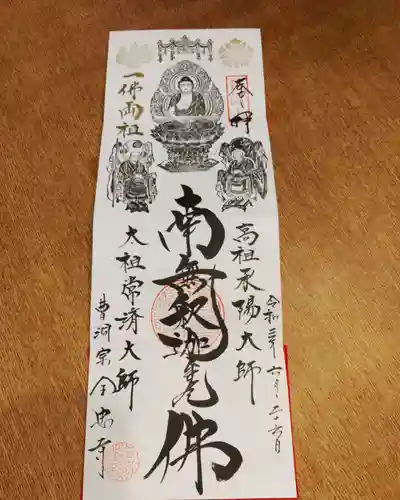 奉拝
一佛両祖
高祖承陽大師
南無釈迦牟尼佛
太祖常済大師
令和三年六月二十六日
曹洞宗全忠寺